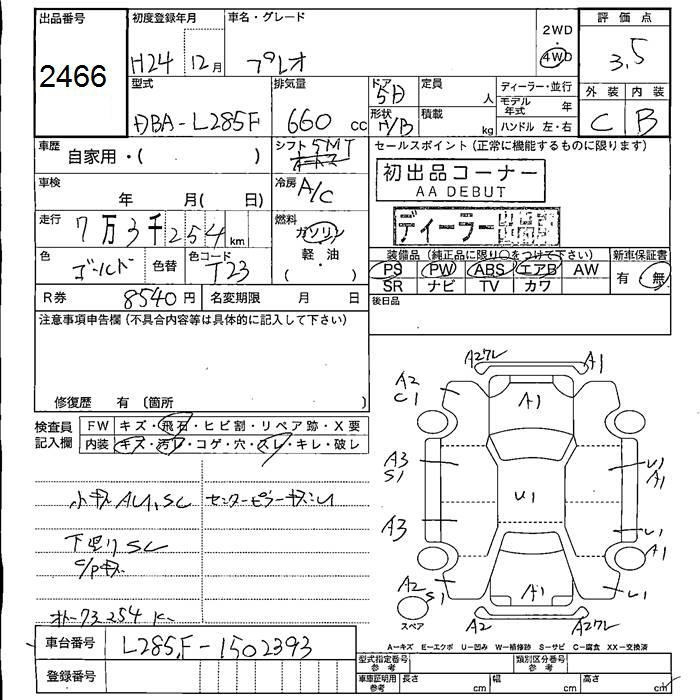 出品番号
2466
初度登録年月
H24 12月
車名・グレード
プレオ
2WD
4WD
評価点
3.5
外装 内装
C B
型式
DBA-L285F
排気量
660 cc
ドア
5D
形状
H/B
定員
人
積載
kg
ディーラー・並行
モデル年式 年
ハンドル 左・右
車歴
自家用・( )
シフト
5MT
セールスポイント(正常に機能するものに限ります)
初出品コーナー
AA DEBUT
ディーラー
車検
年 月( 日)
冷房
A/C
走行
7万3千254km
燃料
ガソリン
軽・油
( )
色
ゴールド
色替
色コード
T23
装備品(純正品に限り○をつけて下さい)
PS PW ABS エアB AW
SR ナビ TV カワ
新車保証書
有 無
R券 8540円 名変期限 月 日
後日品
注意事項申告欄(不具合内容等は具体的に記入して下さい)
修復歴 有 〔箇所 〕
検査員記入欄
FW キズ・飛石・ヒビ割・リペア跡・X要
内装 キズ・汚レ・コゲ・穴・スレ・キレ・破レ
小キズAU,SC
センターピラーキズ:U
下廻りSC
C/Pキズ
オドー73254K
A27レ
A1
A2
C1
A1
A3
S1
U1
A1
U1
A3
U1
A1
A2
S1
A1
U1
スペア
A2
A27レ
A=キズ E=エクボ U=凹み W=補修跡 S=サビ C=腐食 XX=交換済
車台番号
L285F-1502393
登録番号
型式指定番号 参考
類別区分番号 参考
車庫証明用 参考
長さ cm
幅 cm
高さ cm